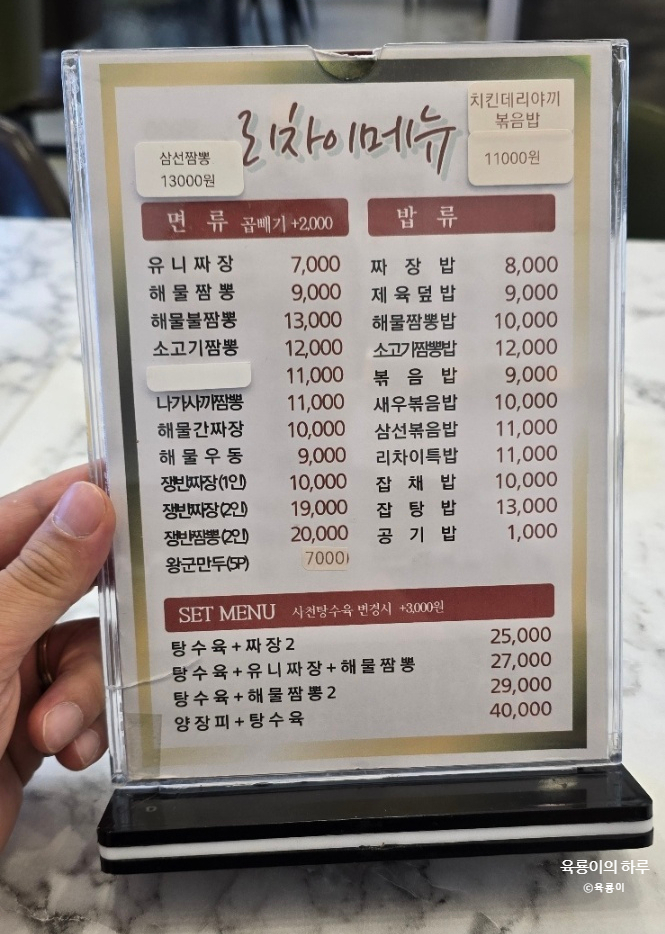 리차이메뉴
삼선짬뽕
13000원
치킨데리야끼
볶음밥
11000원
면 류 곱빼기 +2,000
유니짜장 7,000
해물짬뽕 9,000
해물불짬뽕 13,000
소고기짬뽕 12,000
11,000
나가사끼짬뽕 11,000
해물간짜장 10,000
해물우동 9,000
쟁반짜장(1인) 10,000
쟁반짜장(2인) 19,000
쟁반짬뽕(2인) 20,000
왕군만두(5P) 7000
밥 류
짜장밥 8,000
제육덮밥 9,000
해물짬뽕밥 10,000
소고기짬뽕밥 12,000
볶음밥 9,000
새우볶음밥 10,000
삼선볶음밥 11,000
리차이특밥 11,000
잡채밥 10,000
잡탕밥 13,000
공기밥 1,000
SET MENU 사천탕수육 변경시 +3,000원
탕수육+짜장2 25,000
탕수육+유니짜장+해물짬뽕 27,000
탕수육+해물짬뽕2 29,000
양장피+탕수육 40,000
육룡이의 하루
©육룡이